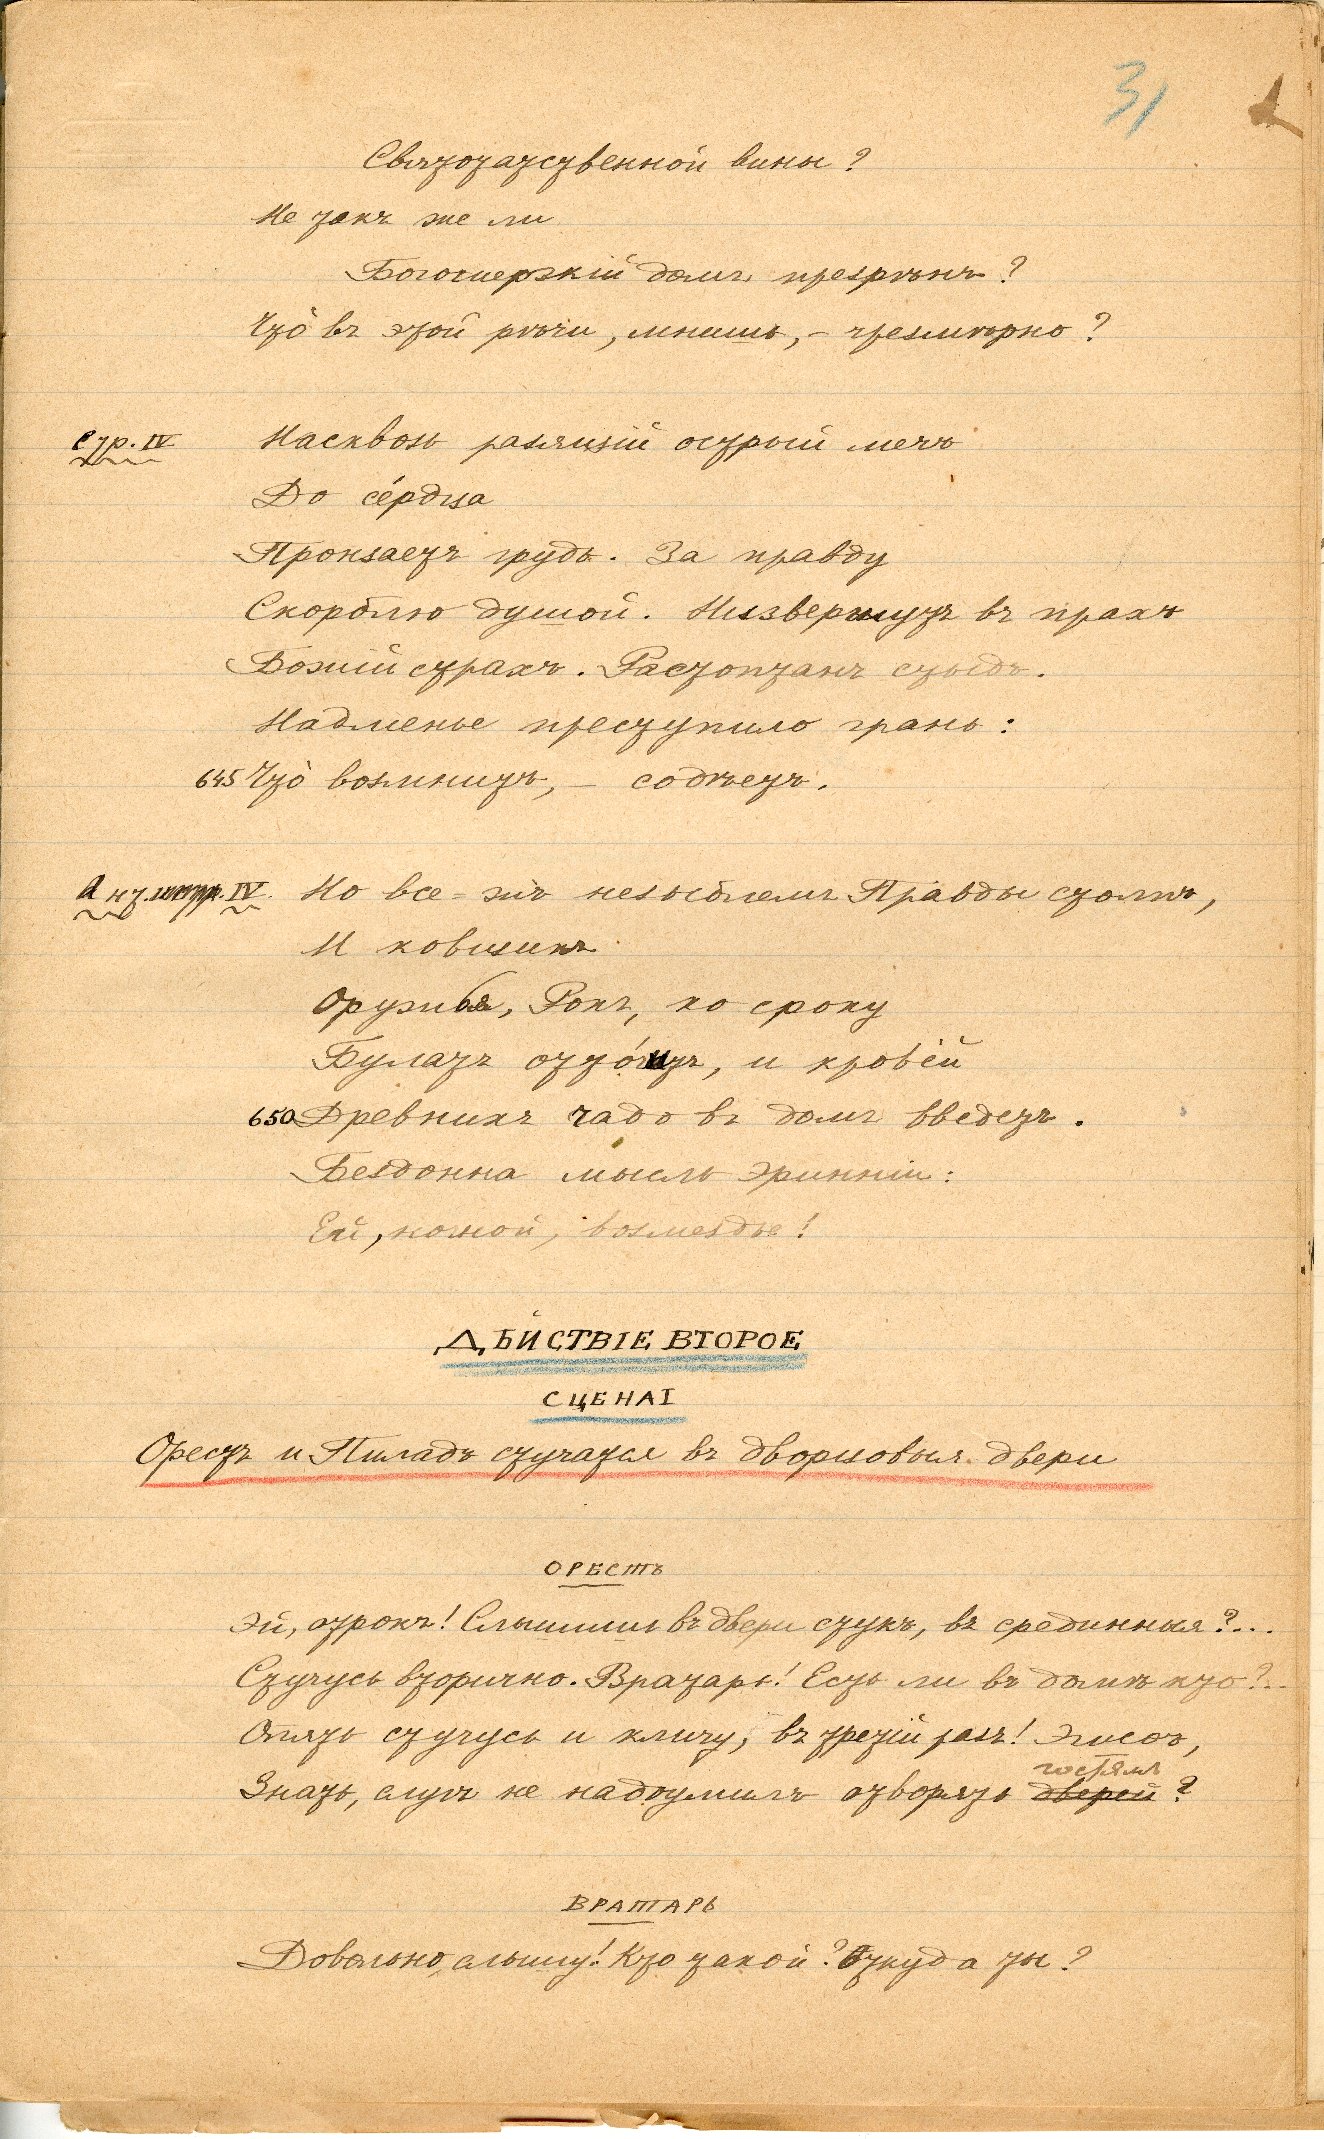 31
Святотатственной вины?
Не такъ же ли
Богомерзкій домъ презрѣнъ?
Что̀ въ этой рѣчи, мнишь, – чрезмѣрно?
Стр. IV Насквозь разящій острый мечъ
До се́рдца
Пронзаетъ грудь. За правду
Скорблю душой. Низвергнутъ въ прахъ
Божій страхъ. Растоптанъ стыдъ.
Надменье преступило грань:
645 Что̀ возмнитъ, – содѣетъ.
Ант. стр. IV. Но все-жъ незыблемъ Правды столпъ,
И ковщикъ
Оружья, Рокъ, ко сроку
Булатъ отто́читъ, и кровей
650 Древнихъ чадо въ домъ введетъ.
Бездонна мысль Эринніи:
Ей, ночной, возмездье!
ДѢЙСТВІЕ ВТОРОЕ
СЦЕНА I
Орестъ и Пиладъ стучатся въ дворцовыя двери
ОРЕСТЪ
Эй, отрокъ! Слышишь въ двери стукъ, въ срединныя?...
Стучусь вторично. Вратарь! Есть ли въ домѣ кто?..
Опять стучусь и кличу, въ третій разъ! Эгисѳъ,
гостямъ
Знать, слугъ не надоумилъ отворять дверей?
ВРАТАРЬ
Довольно, слышу! Кто такой? Откуда ты?